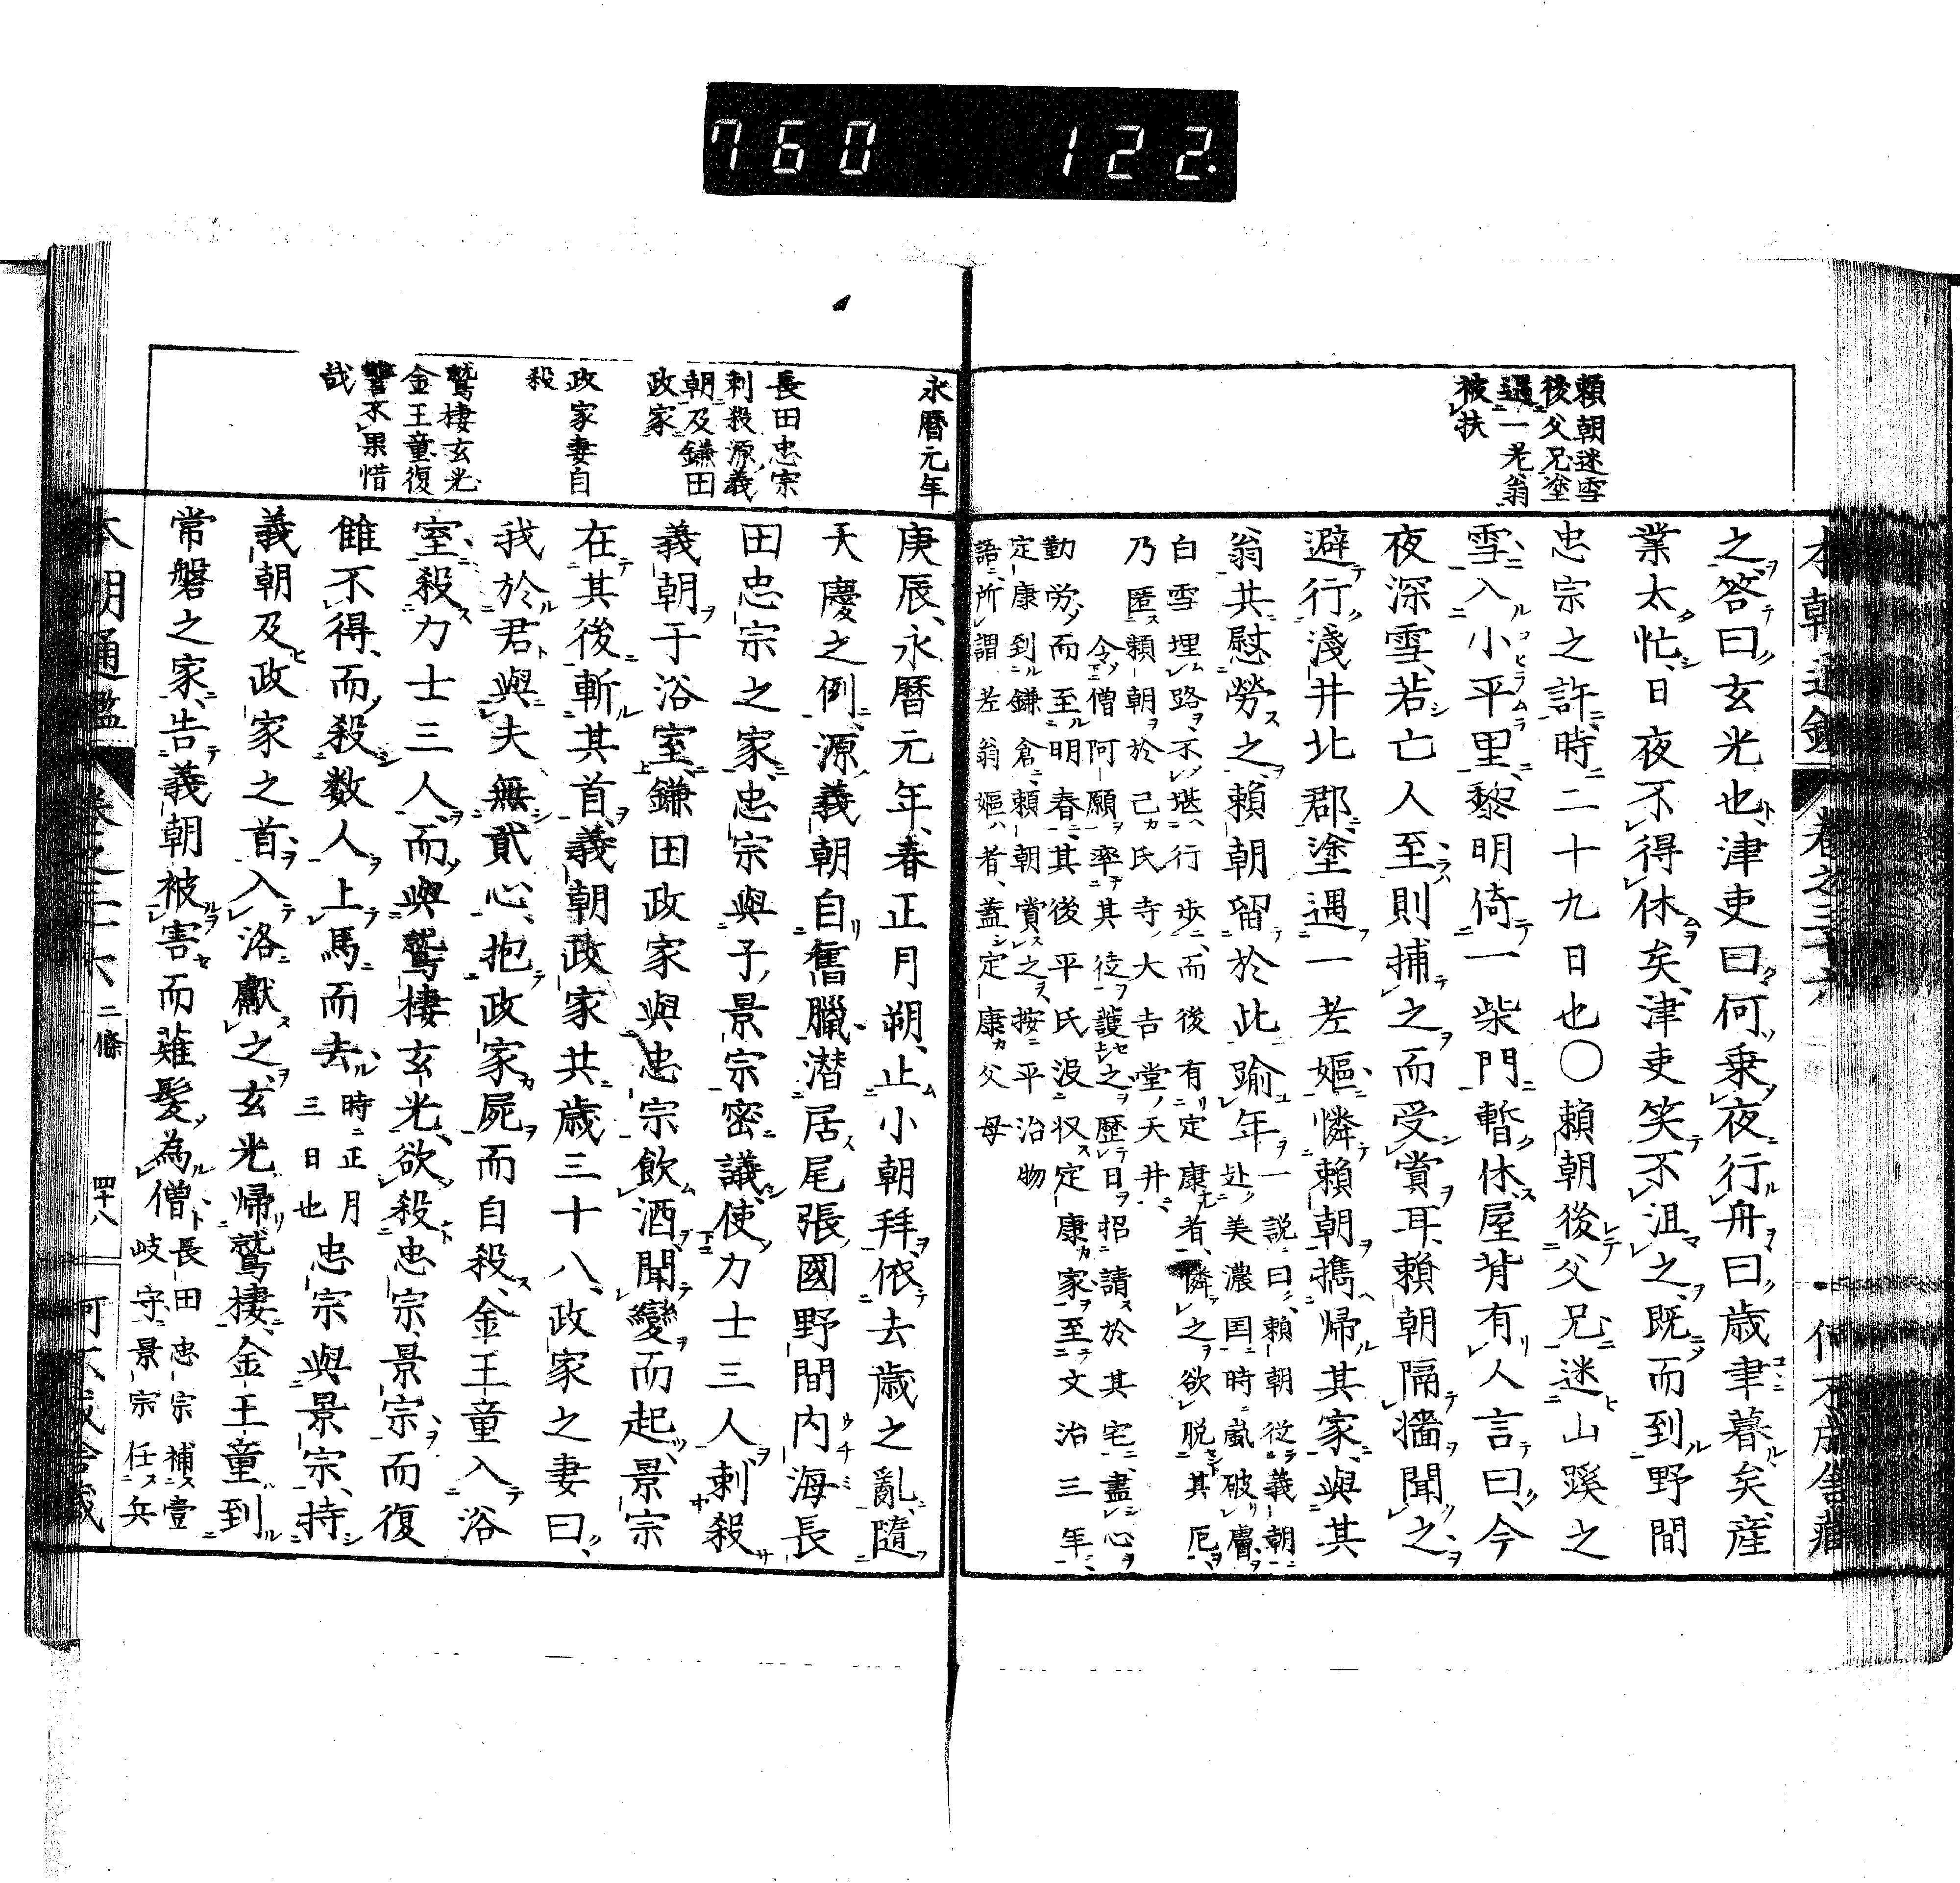 760 122.
本朝通鑑 卷之三十六
賴朝迷雪
後父兄塗
遇一老翁
被扶
之答曰玄光也津吏曰何乗夜行舟曰歳聿暮矣産
業太忙日夜不得休矣津吏笑不沮之既而到野間
忠宗之許時二十九日也〇賴朝後父兄迷山蹊之
雪入小平里黎明倚一柴門暫休屋背有人言曰今
夜深雪若亡人至則捕之而受賞耳賴朝隔墻聞之
避行淺井北郡塗遇一老嫗憐賴朝携帰其家與其
翁共慰勞之賴朝留於此踰年
一説曰賴朝從義朝
赴美濃国時嵐破膚
白雪埋路不堪行歩而後有定康者憐之欲脱其厄
乃匿賴朝於己氏寺大吉堂天井
令僧阿願率其徒護之歴日招請於其宅盡心
勤労而至明春其後平氏没収定康家至文治三年
定康到鎌倉賴朝賞之按平治物
語所謂老翁嫗者蓋定康父母
永暦元年
長田忠宗
刺殺源義
朝及鎌田
政家
政家妻自
殺
鷲棲玄光
金王童復
讐不果惜
哉
庚辰永暦元年春正月朔止小朝拜依去歳之亂隨
天慶之例源義朝自舊臘潜居尾張國野間内海長
田忠宗之家忠宗與子景宗密議使力士三人刺殺
義朝于浴室鎌田政家與忠宗飲酒聞變而起景宗
在其後斬其首義朝政家共歳三十八政家之妻曰
我於君與夫無貳心抱政家屍而自殺金王童入浴
室殺力士三人而與鷲棲玄光欲殺忠宗景宗而復
讎不得而殺数人上馬而去
時正月
三日也
忠宗與景宗持
義朝及政家之首入洛獻之玄光帰鷲棲金王童到
常磐之家告義朝被害而薙髮為僧
長田忠宗補壹
岐守景宗任兵
本朝通鑑 卷之三十六 二條 四十八